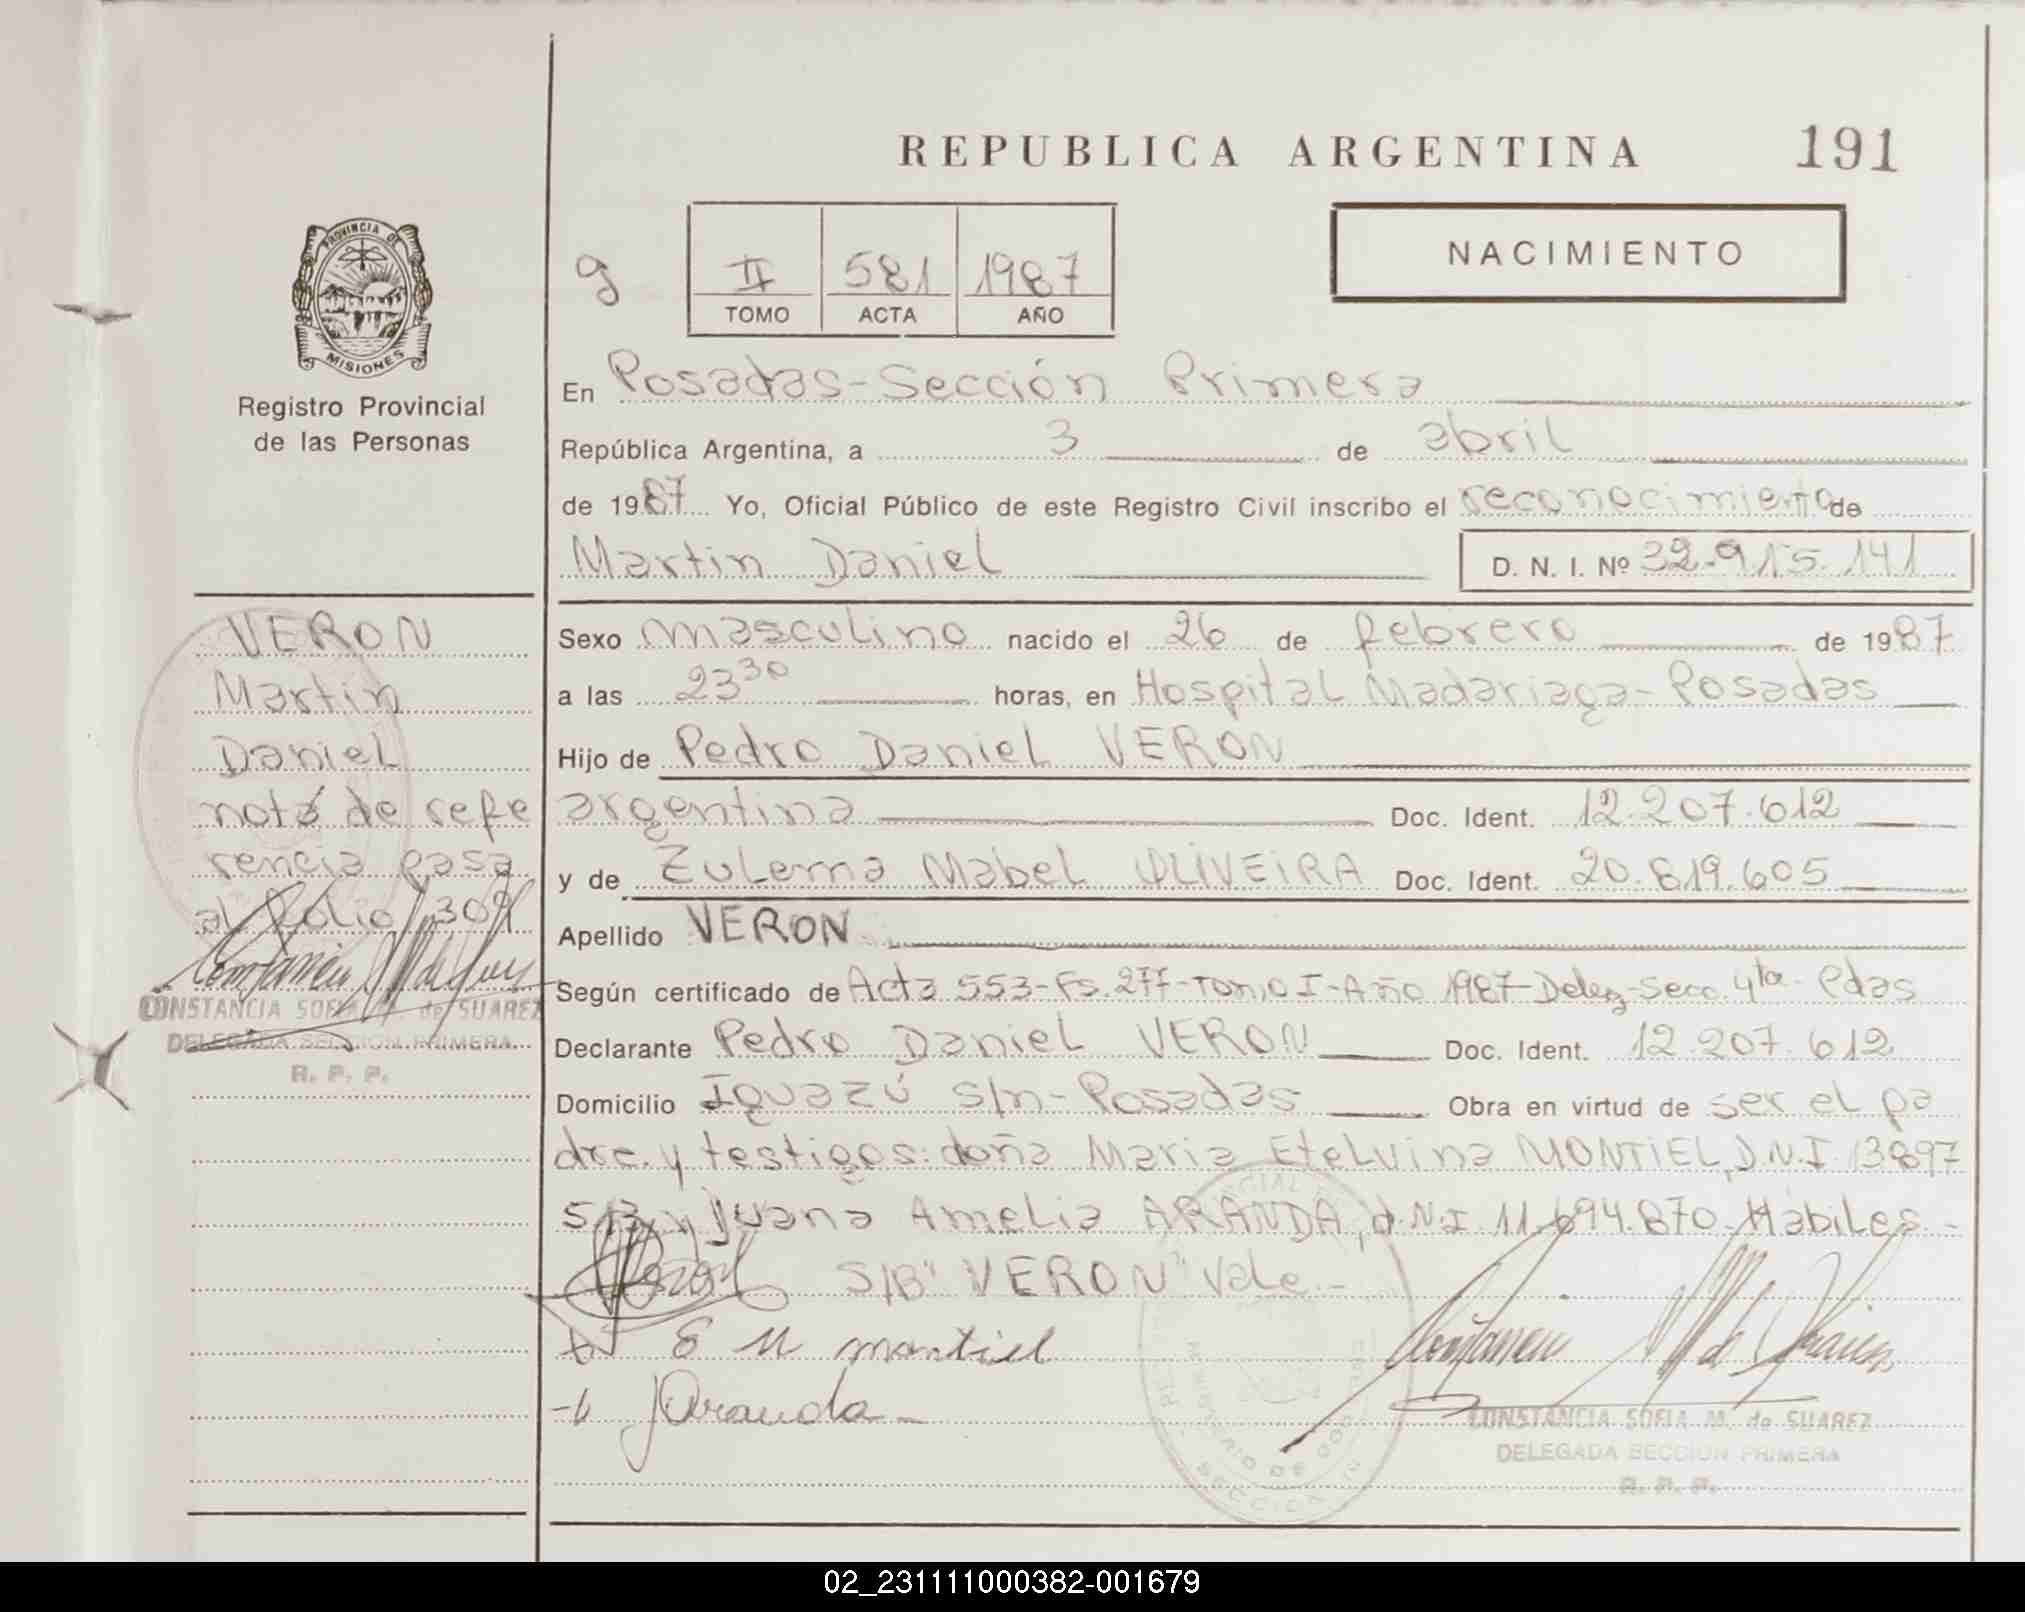 REPUBLICA ARGENTINA 191
PROVINCIA DE
MISIONES
Registro Provincial
de las Personas
g
II 581 1987
TOMO ACTA AÑO
NACIMIENTO
En Posadas-Sección Primera
República Argentina, a 3 de abril
de 1987 Yo, Oficial Público de este Registro Civil inscribo el reconocimiento de
Martin Daniel D. N. I. Nº 32.915.141
Sexo masculino nacido el 26 de febrero de 1987
a las 23 30 horas, en Hospital Madariaga-Posadas
Hijo de Pedro Daniel VERON
argentina Doc. Ident. 12.207.612
y de Zulema Mabel OLIVEIRA Doc. Ident. 20.819.605
Apellido VERON
Según certificado de Acta 553-Fs.277-Tomo I-Año 1987-Deleg-Secc. 4ta- Pdas
Declarante Pedro Daniel VERON Doc. Ident. 12.207.612
Domicilio Iguazú s/n-Posadas Obra en virtud de ser el pa
dre. y testigos: doña Maria Etelvina MONTIEL, D.N.I. 13897
513 y Juana Amelia ARANDA, d.N.I 11.694.870-Hábiles-
S/B" VERON" Vale.-
E M montiel
J Aranda
CONSTANCIA SOFIA M. de SUAREZ
DELEGADA SECCION PRIMERA
R. P. P.
VERON
Martin
Daniel
nota de refe
rencia pasa
al folio 309
CONSTANCIA SOFIA M. de SUAREZ
DELEGADA SECCION PRIMERA
R. P. P.
02_231111000382-001679